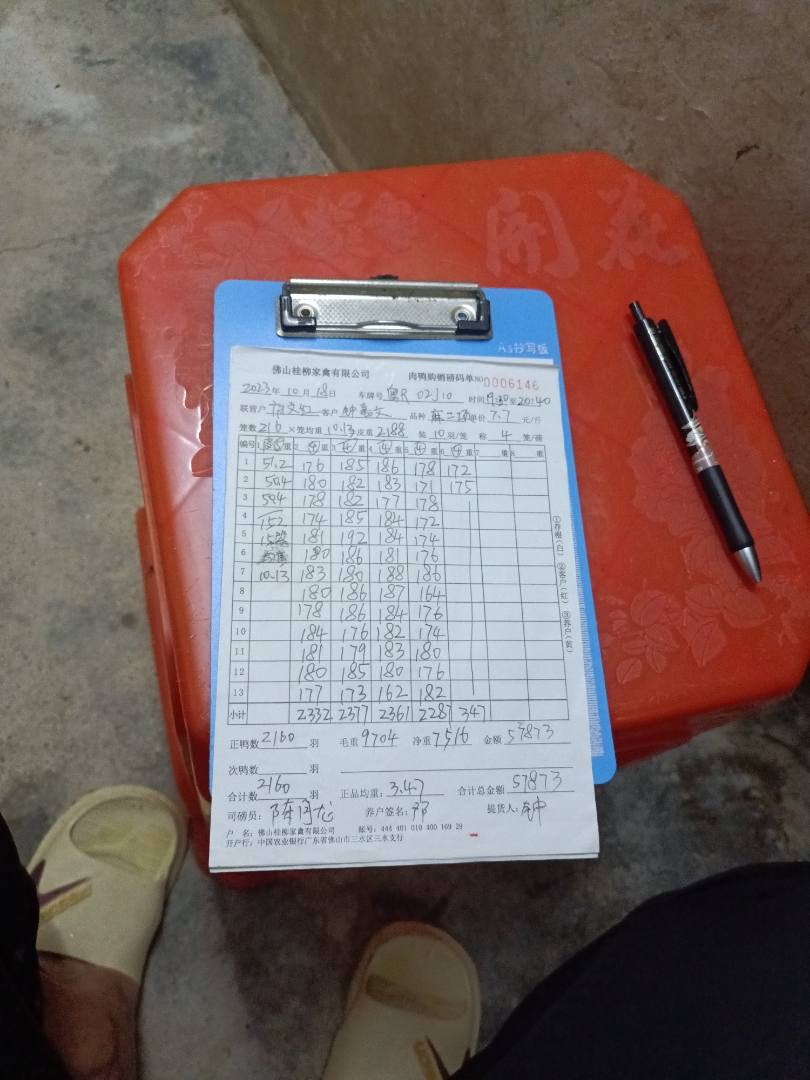 开花
A5抄写板
佛山桂柳家禽有限公司 肉鸭购销磅码单 NO 0006146
2023年10月18日 车牌号 粤R 02J10 时间 19:30至20:40
联营户 客户 钟 品种 麻二 单价 7.7 元/斤
笼数 216 ×笼均重 10.13 皮重 2188 装 10 羽/笼 称 4 笼/磅
编号 1 重 2 重 3 重 4 重 5 重 6 重 7 重 8 重
1 51.2 176 185 186 178 172
2 50.4 180 182 183 171 175
3 50.4 178 182 177 178
4 152 174 185 184 172
5 15笼 181 192 184 174
6 180 186 181 176
7 10.13 183 180 188 186
8 180 186 187 164
9 178 186 184 176
10 184 176 182 174
11 181 179 183 180
12 180 185 180 176
13 177 173 162 182
小计 2332 2377 2361 2287 347
正鸭数 2160 羽 毛重 9704 净重 7516 金额 57873
次鸭数 羽
合计数 2160 羽 正品均重: 3.47 合计总金额 57873
司磅员: 陈 养户签名: 邓 提货人: 钟
户 名: 佛山桂柳家禽有限公司 账号: 444 401 010 400 169 29
开户行: 中国农业银行广东省佛山市三水区三水支行
①存根(白) ②客户(红) ③养户(黄)